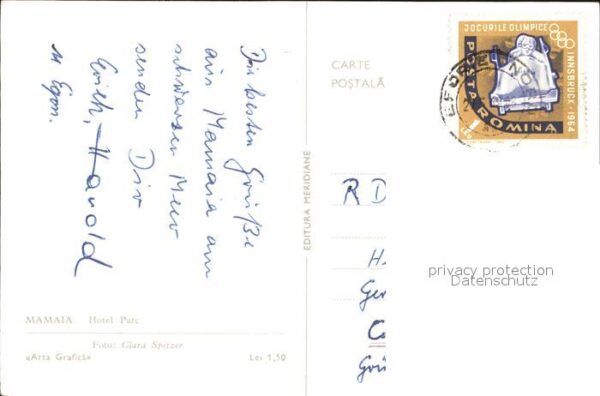 Die besten Grüße
aus Mamaia am
schwarzen Meer
senden Dir
Erich, Harold
u. Egon.
MAMAIA Hotel Parc
Foto: Clara Spitzer
«Arta Grafică» Lei 1,50
EDITURA MERIDIANE
CARTE
POȘTALĂ
JOCURILE OLIMPICE
INNSBRUCK-1964
POSTA ROMINA
1 LEU
R D
H.
Ger
Grü
privacy protection
Datenschutz